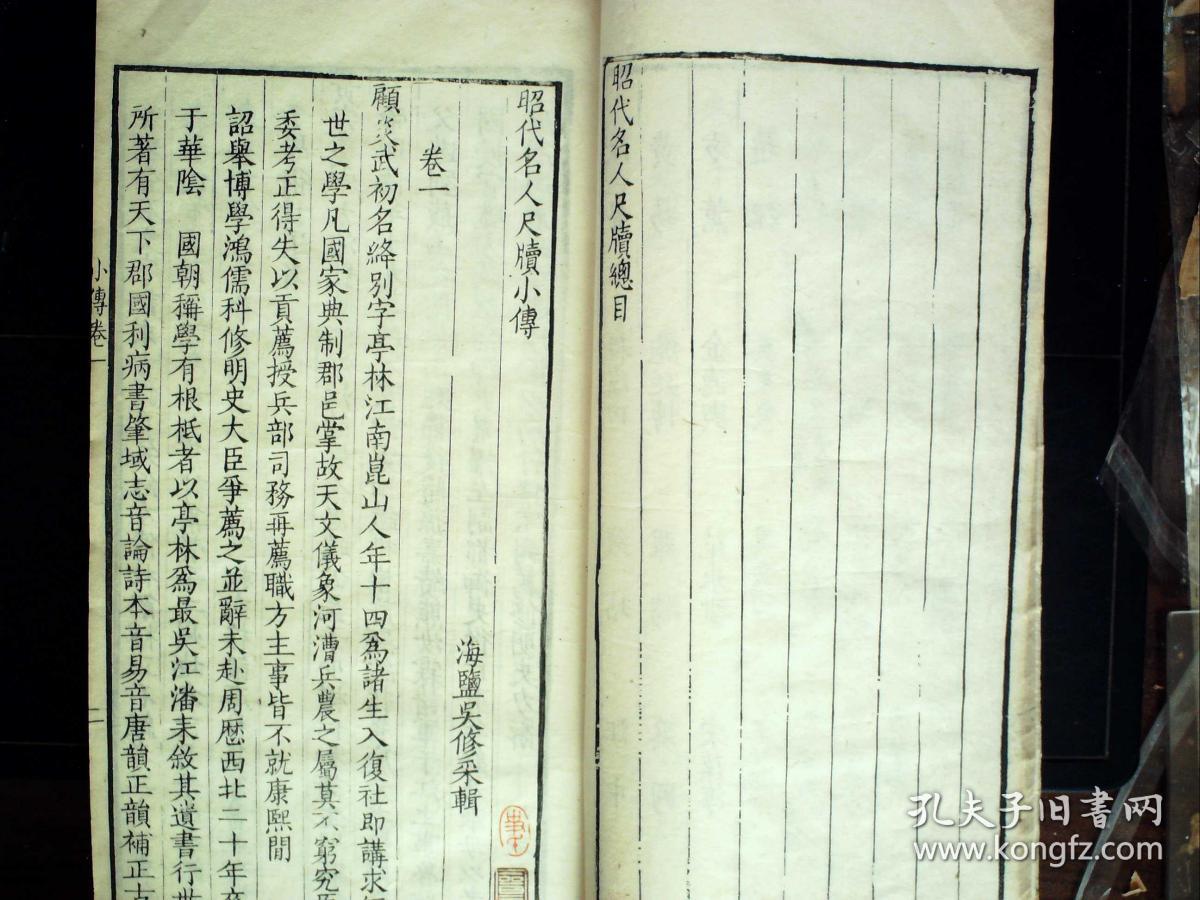 昭代名人尺牘總目
昭代名人尺牘小傳
海鹽吳修采輯
卷一
顧炎武初名絳别字亭林江南崑山人年十四爲諸生入復社即講求
世之學凡國家典制郡邑掌故天文儀象河漕兵農之屬莫不窮究
委考正得失以貢薦授兵部司務再薦職方主事皆不就康熙閒
詔舉博學鴻儒科修明史大臣爭薦之並辭未赴周歷西北二十年卒
于華陰 國朝稱學有根柢者以亭林爲最吳江潘耒敘其遺書行世
所著有天下郡國利病書肇域志音論詩本音易音唐韻正韻補正古
小傳卷一
一
孔夫子旧書网
www.kongfz.com